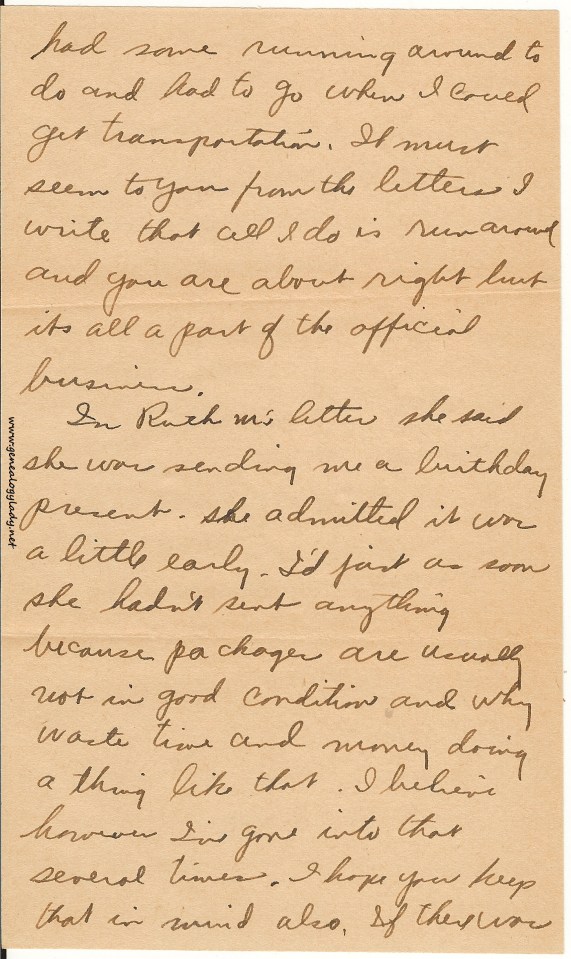 had some running around to
do and had to go when I could
get transportation. It must
seem to you from the letters I
write that all I do is run around
and you are about right but
its all a part of the official
business.
In Ruth M's letter she said
she was sending me a birthday
present. she admitted it was
a little early. I'd just as soon
she hadn't sent anything
because packages are usually
not in good condition and why
waste time and money doing
a thing like that. I believe
however I've gone into that
several times. I hope you keep
that in mind also. If there was
www.genealogylady.net